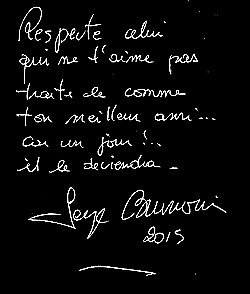 Respecte celui
qui ne t'aime pas
traite le comme
ton meilleur ami...
car un jour!..
il le deviendra.
Serge
2015